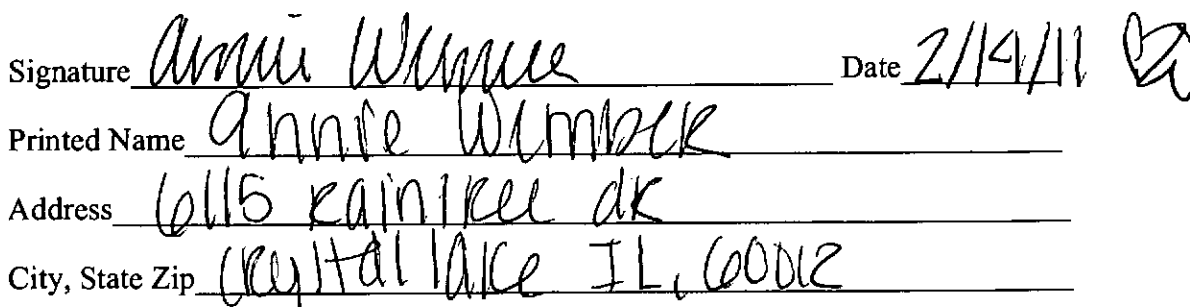 Signature Annie Date 2/14/11
Printed Name Annie Wimber
Address 6115 Raintree dR
City, State Zip CRystal lake IL, 60012